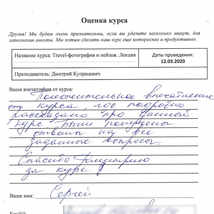 Оценка курса
Друзья! Мы будем очень признательны, если вы уделите несколько минут, для
заполнения анкеты. Мы хотим сделать наш курс еще интереснее и продуктивнее.
Название курса: Travel-фотография и пейзаж. Лекция
Дата проведения:
12.03.2020
Преподаватель: Дмитрий Купрацевич
Ваше впечатление от курса:
Положительные впечатления
от курса, подробно
рассказано про данный
курс. Были получены
ответы на все
заданные вопросы.
Спасибо Дмитрию
за курс!
Ваше имя:
Сергей